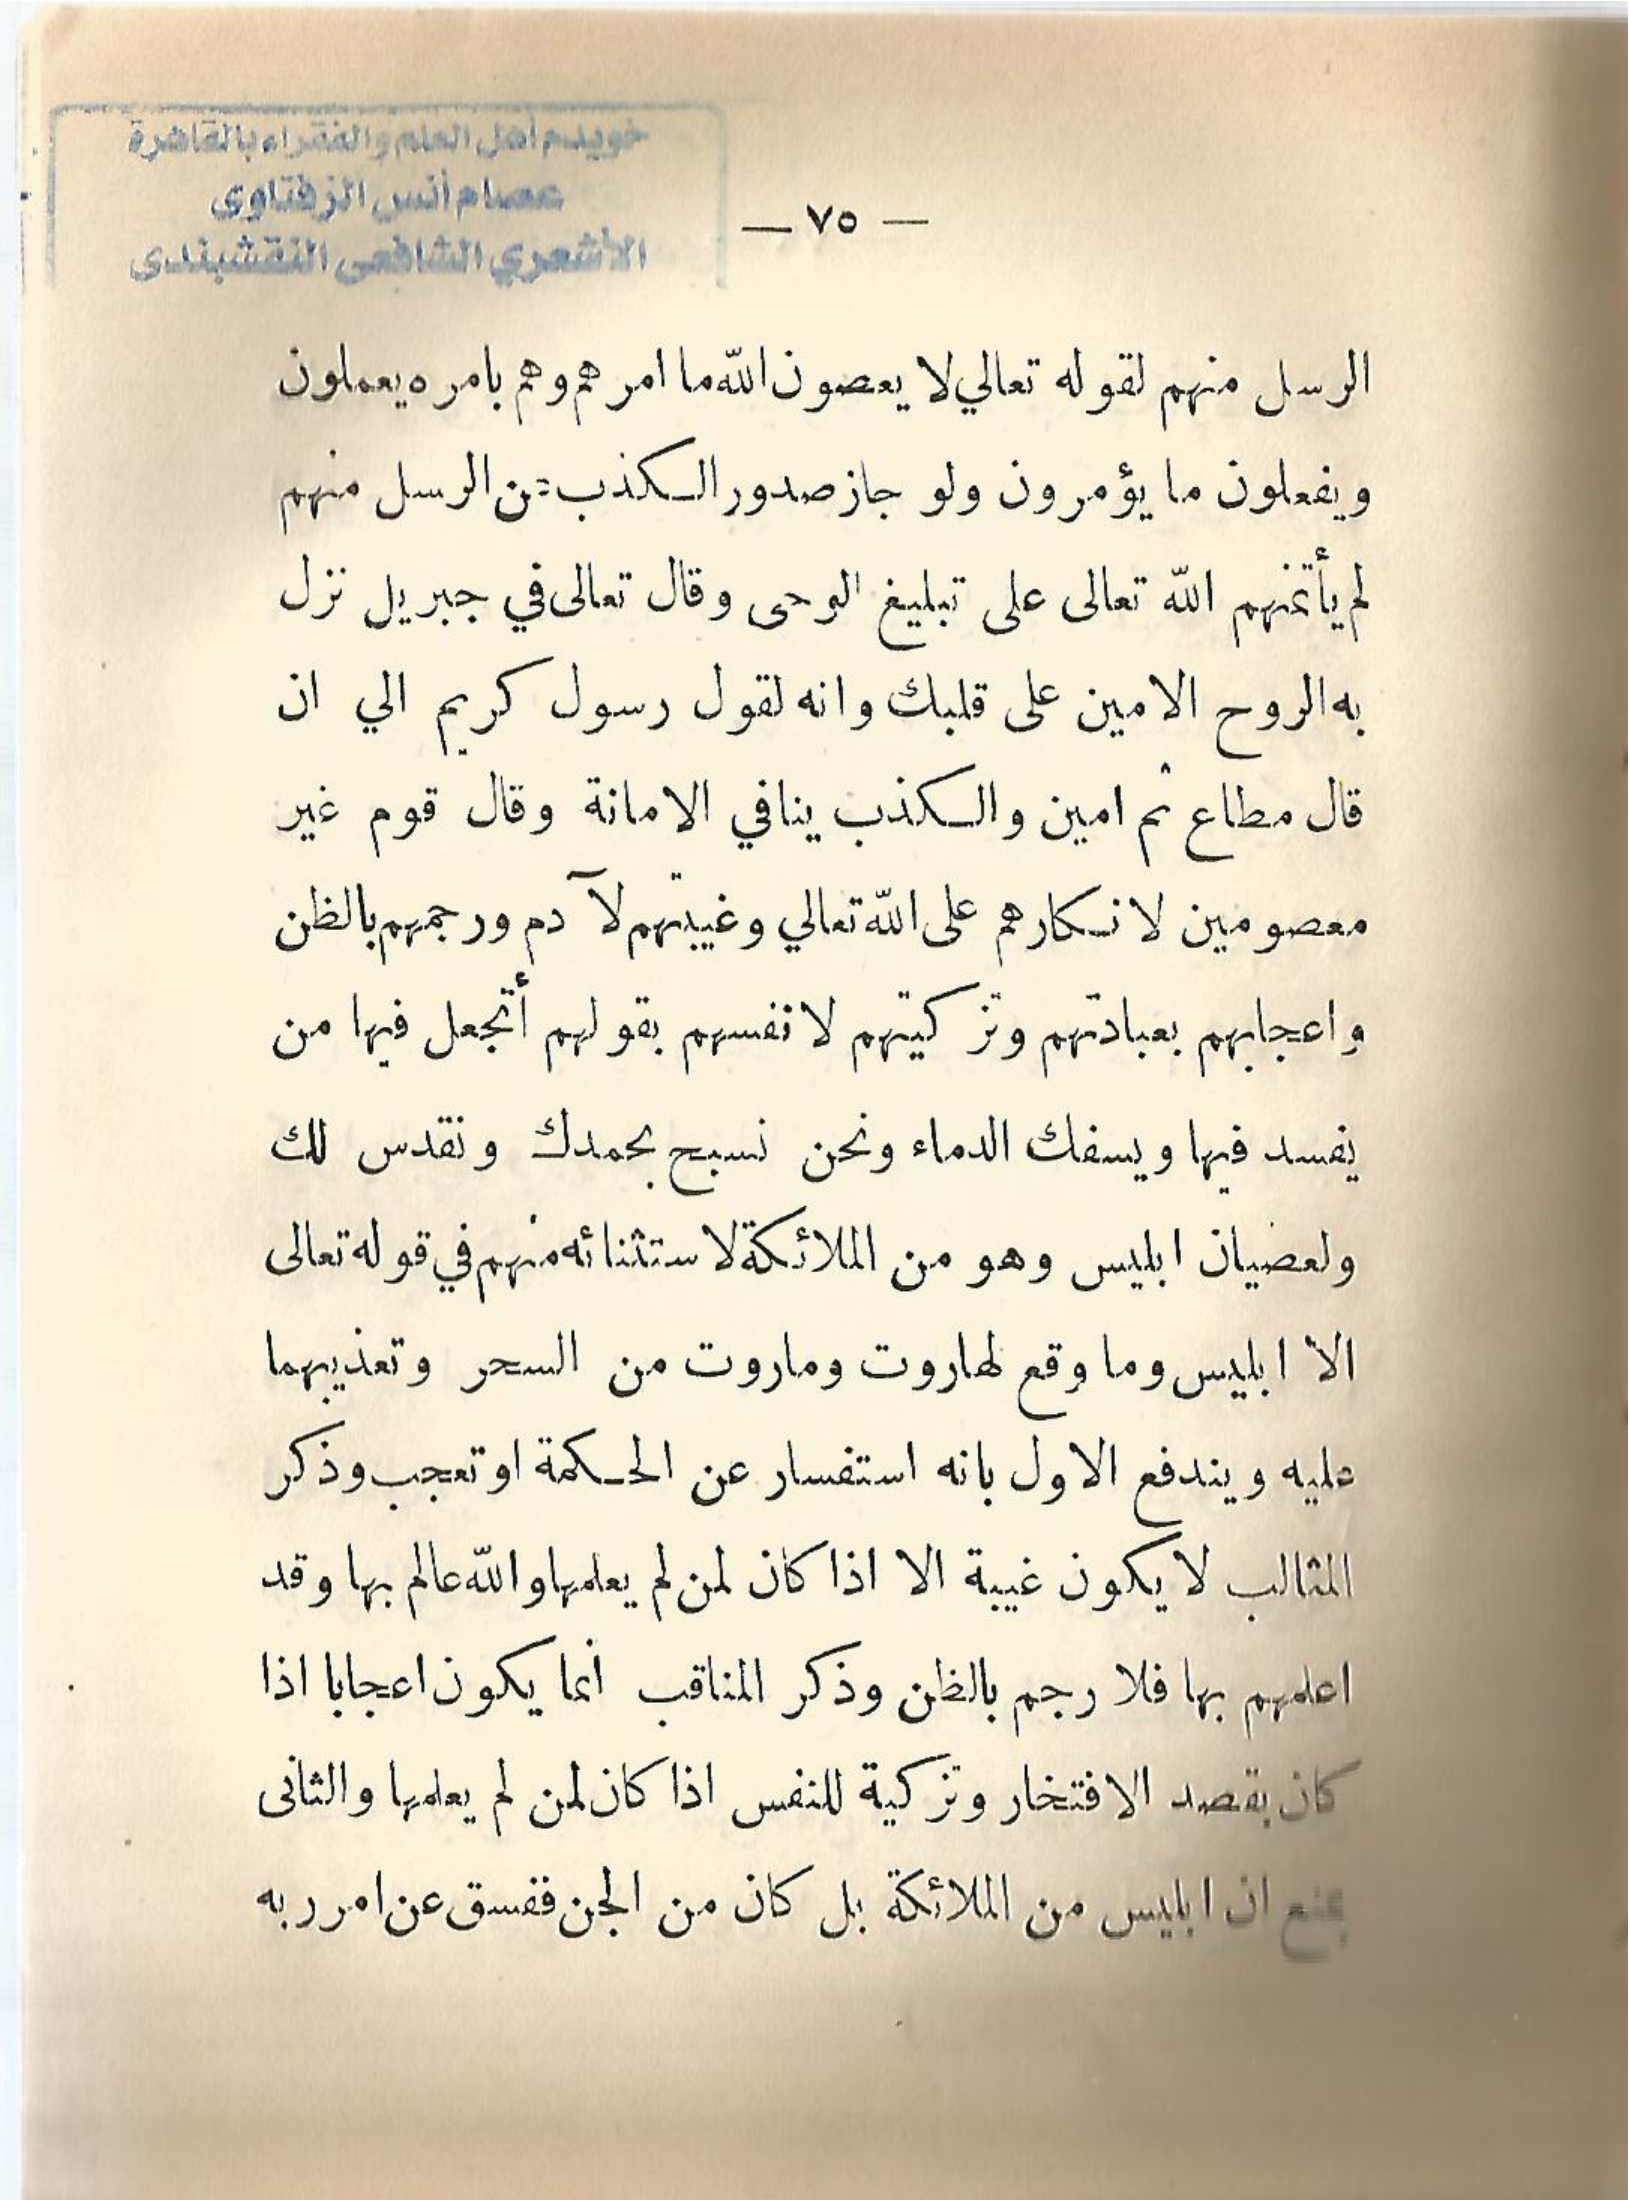 خويدم أهل العلم والفقراء بالقاهرة
عصام أنس الزفتاوى
الأشعري الشافعى النقشبندى
— ٧٥ —
الرسل منهم لقوله تعالي لا يعصون الله ما امرهم وهم بامره يعملون
ويفعلون ما يؤمرون ولو جاز صدور الكذب من الرسل منهم
لم يأتمنهم الله تعالى على تبليغ الوحى وقال تعالى في جبريل نزل
به الروح الامين على قلبك وانه لقول رسول كريم الي ان
قال مطاع ثم امين والكذب ينافي الامانة وقال قوم غير
معصومين لانكارهم على الله تعالي وغيبتهم لآدم ورجمهم بالظن
واعجابهم بعبادتهم وتزكيتهم لانفسهم بقولهم أتجعل فيها من
يفسد فيها ويسفك الدماء ونحن نسبح بحمدك ونقدس لك
ولعصيان ابليس وهو من الملائكة لاستثنائه منهم في قوله تعالى
الا ابليس وما وقع لهاروت وماروت من السحر وتعذيبهما
عليه ويندفع الاول بانه استفسار عن الحكمة او تعجب وذكر
المثالب لا يكون غيبة الا اذا كان لمن لم يعلمها والله عالم بها وقد
اعلمهم بها فلا رجم بالظن وذكر المناقب انما يكون اعجابا اذا
كان بقصد الافتخار وتزكية للنفس اذا كان لمن لم يعلمها والثانى
بمنع ان ابليس من الملائكة بل كان من الجن ففسق عن امر ربه